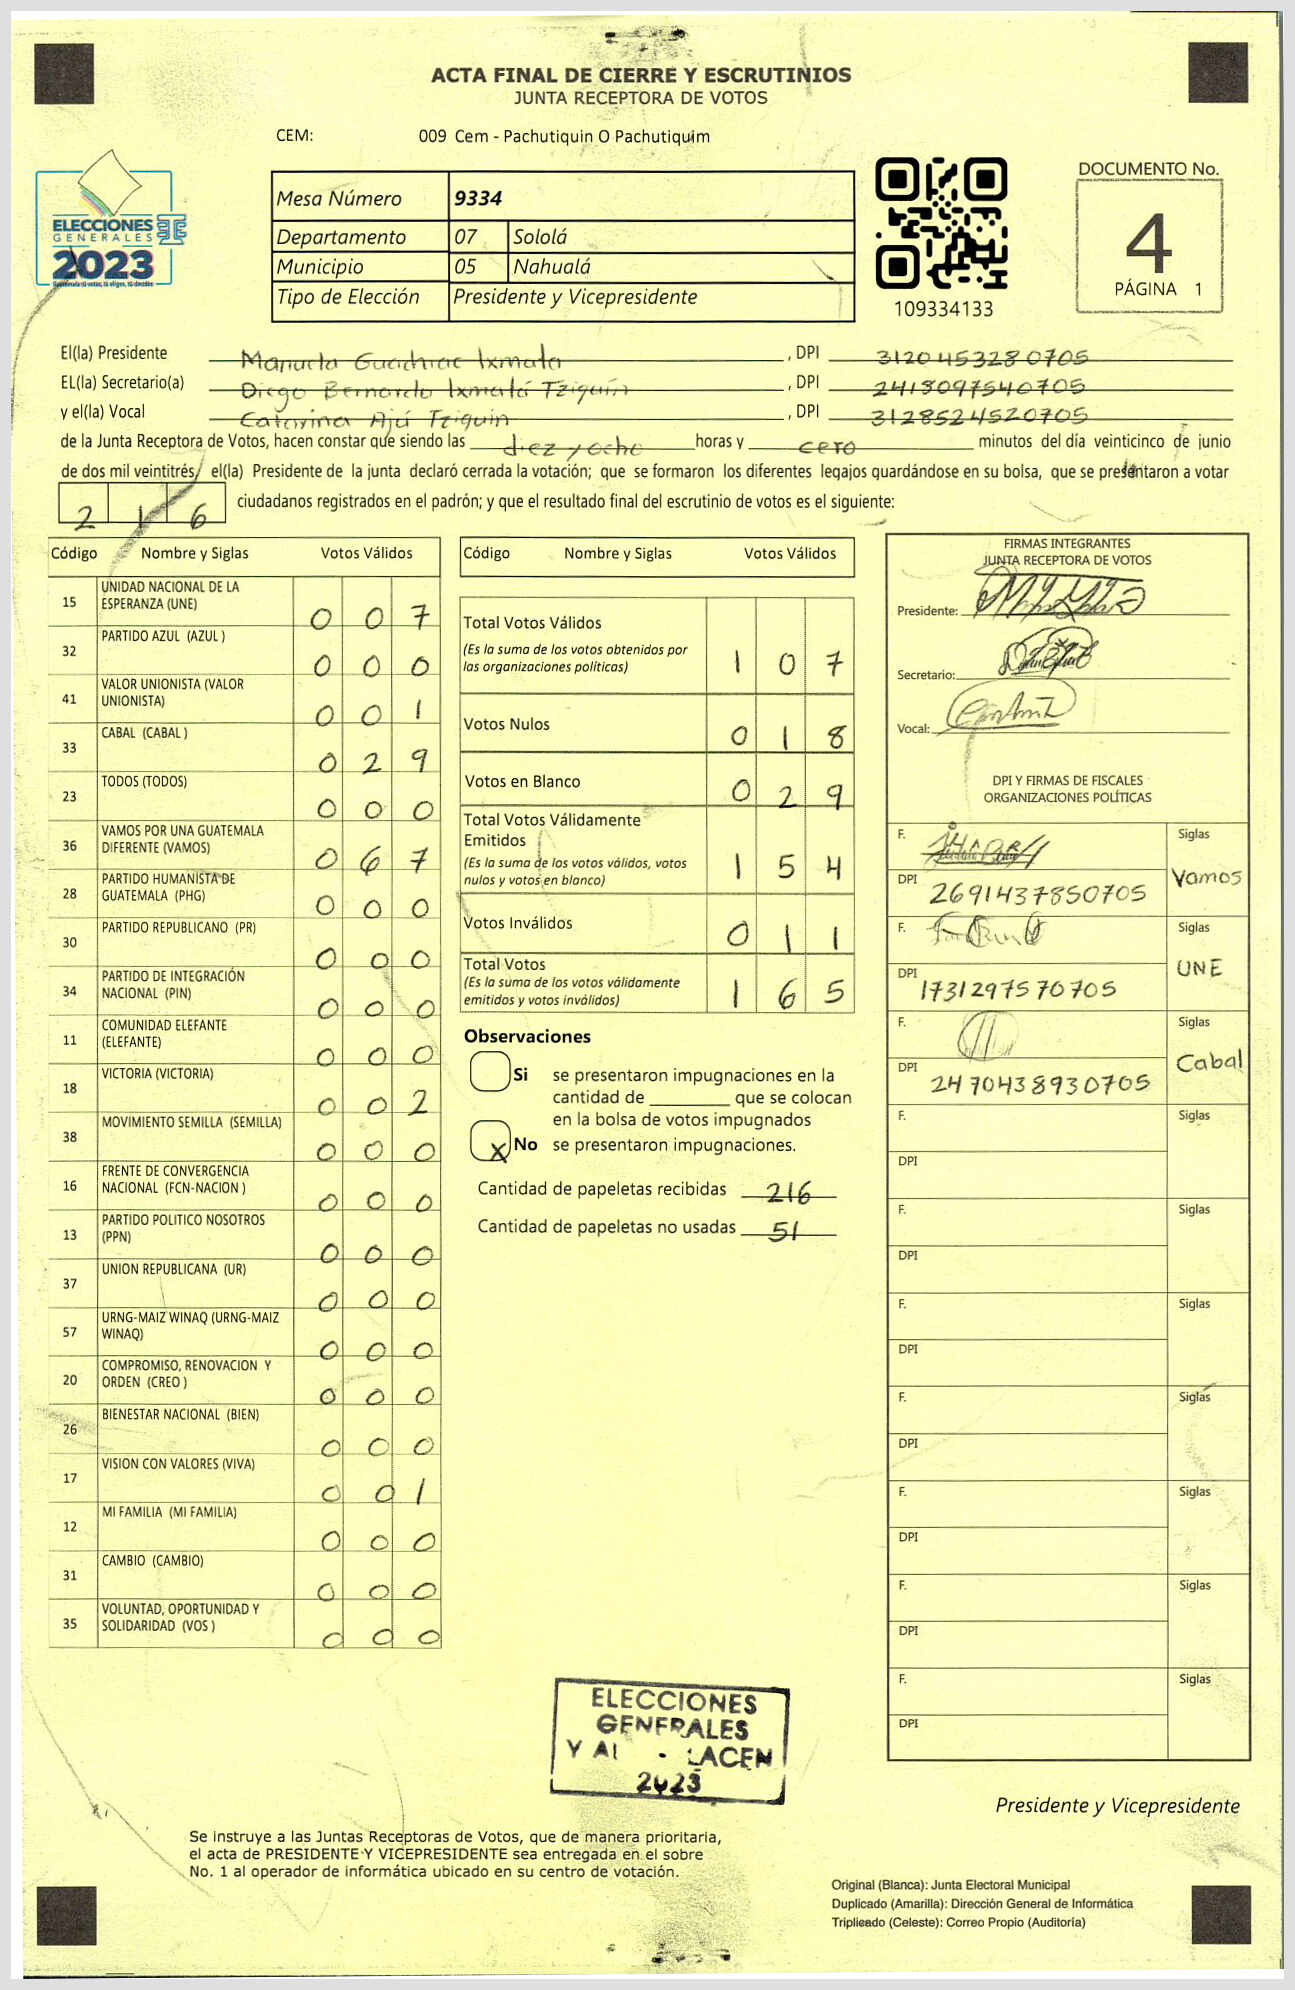 ACTA FINAL DE CIERRE Y ESCRUTINIOS
JUNTA RECEPTORA DE VOTOS
CEM: 009 Cem - Pachutiquin O Pachutiquim
ELECCIONES
GENERALES
2023
Mesa Número 9334
Departamento 07 Sololá
Municipio 05 Nahualá
Tipo de Elección Presidente y Vicepresidente
109334133
DOCUMENTO No.
4
PÁGINA 1
El(la) Presidente Manuela Guachiac Ixmata, DPI 3120453280705
EL(la) Secretario(a) Diego Bernardo Ixmatá Tziquín, DPI 2418097540705
y el(la) Vocal Catarina Ajú Tziquin, DPI 3128524520705
de la Junta Receptora de Votos, hacen constar que siendo las diez y ocho horas y cero minutos del día veinticinco de junio
de dos mil veintitrés, el(la) Presidente de la junta declaró cerrada la votación; que se formaron los diferentes legajos guardándose en su bolsa, que se presentaron a votar
216 ciudadanos registrados en el padrón; y que el resultado final del escrutinio de votos es el siguiente:
Código Nombre y Siglas Votos Válidos
15 UNIDAD NACIONAL DE LA
ESPERANZA (UNE) 0 0 7
32 PARTIDO AZUL (AZUL ) 0 0 0
41 VALOR UNIONISTA (VALOR
UNIONISTA) 0 0 1
33 CABAL (CABAL ) 0 2 9
23 TODOS (TODOS) 0 0 0
36 VAMOS POR UNA GUATEMALA
DIFERENTE (VAMOS) 0 6 7
28 PARTIDO HUMANISTA DE
GUATEMALA (PHG) 0 0 0
30 PARTIDO REPUBLICANO (PR) 0 0 0
34 PARTIDO DE INTEGRACIÓN
NACIONAL (PIN) 0 0 0
11 COMUNIDAD ELEFANTE
(ELEFANTE) 0 0 0
18 VICTORIA (VICTORIA) 0 0 2
38 MOVIMIENTO SEMILLA (SEMILLA) 0 0 0
16 FRENTE DE CONVERGENCIA
NACIONAL (FCN-NACION ) 0 0 0
13 PARTIDO POLITICO NOSOTROS
(PPN) 0 0 0
37 UNION REPUBLICANA (UR) 0 0 0
57 URNG-MAIZ WINAQ (URNG-MAIZ
WINAQ) 0 0 0
20 COMPROMISO, RENOVACION Y
ORDEN (CREO ) 0 0 0
26 BIENESTAR NACIONAL (BIEN) 0 0 0
17 VISION CON VALORES (VIVA) 0 0 1
12 MI FAMILIA (MI FAMILIA) 0 0 0
31 CAMBIO (CAMBIO) 0 0 0
35 VOLUNTAD, OPORTUNIDAD Y
SOLIDARIDAD (VOS ) 0 0 0
Código Nombre y Siglas Votos Válidos
Total Votos Válidos
(Es la suma de los votos obtenidos por
las organizaciones políticas) 1 0 7
Votos Nulos 0 1 8
Votos en Blanco 0 2 9
Total Votos Válidamente
Emitidos
(Es la suma de los votos válidos, votos
nulos y votos en blanco) 1 5 4
Votos Inválidos 0 1 1
Total Votos
(Es la suma de los votos válidamente
emitidos y votos inválidos) 1 6 5
Observaciones
Si se presentaron impugnaciones en la
cantidad de ________ que se colocan
en la bolsa de votos impugnados
X No se presentaron impugnaciones.
Cantidad de papeletas recibidas 216
Cantidad de papeletas no usadas 51
FIRMAS INTEGRANTES
JUNTA RECEPTORA DE VOTOS
Presidente:
Secretario:
Vocal:
DPI Y FIRMAS DE FISCALES
ORGANIZACIONES POLÍTICAS
F. Siglas
Vamos
DPI 2691437850705
F. Siglas
UNE
DPI 1731297570705
F. Siglas
Cabal
DPI 2470438930705
F. Siglas
DPI
F. Siglas
DPI
F. Siglas
DPI
F. Siglas
DPI
F. Siglas
DPI
F. Siglas
DPI
F. Siglas
DPI
ELECCIONES
GENERALES
Y AL LACEN
2023
Presidente y Vicepresidente
Se instruye a las Juntas Receptoras de Votos, que de manera prioritaria,
el acta de PRESIDENTE Y VICEPRESIDENTE sea entregada en el sobre
No. 1 al operador de informática ubicado en su centro de votación.
Original (Blanca): Junta Electoral Municipal
Duplicado (Amarilla): Dirección General de Informática
Triplicado (Celeste): Correo Propio (Auditoría)